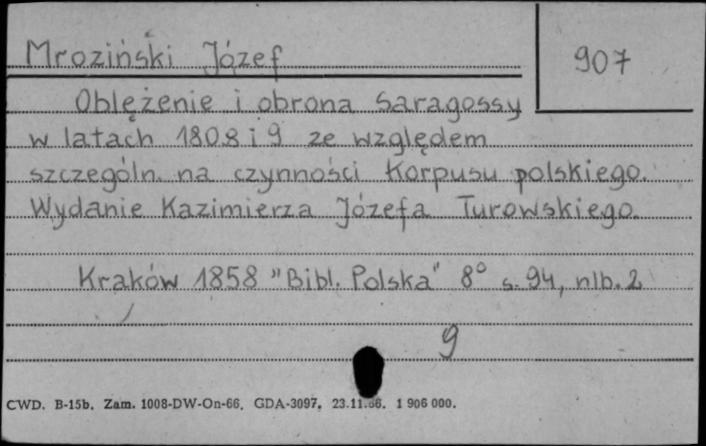 Mroziński Józef
907
Oblężenie i obrona Saragossy
w latach 1808 i 9 ze względem
szczególn. na czynności Korpusu polskiego.
Wydanie Kazimierza Józefa Turowskiego.
Kraków 1858 "Bibl. Polska" 8° s. 94, nlb. 2
9
CWD. B-15b. Zam. 1008-DW-On-66. GDA-3097. 23.11.66. 1 906 000.